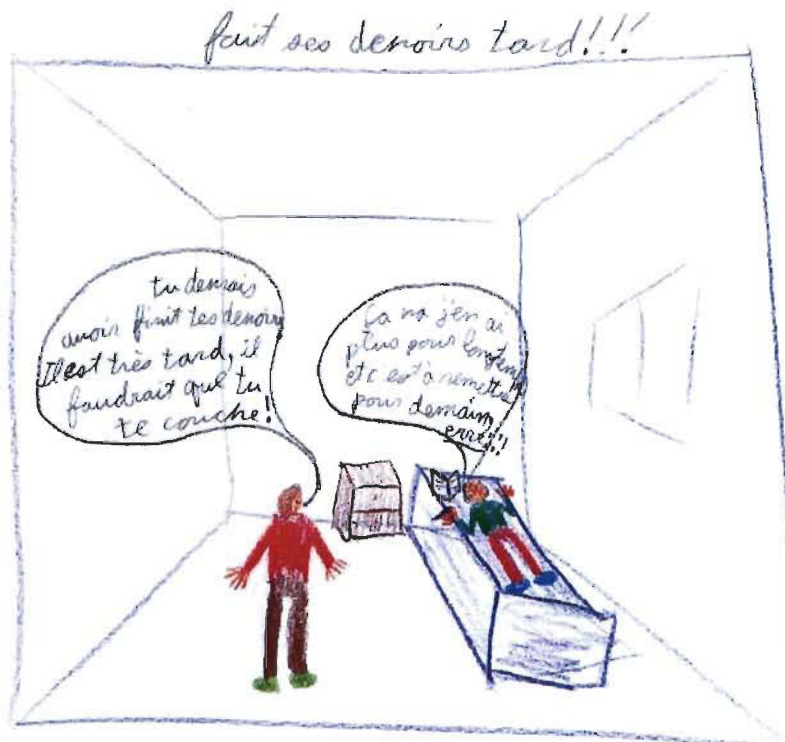 fait ses devoirs tard!!!
tu devrais
avoir finit tes devoirs
Il est très tard, il
faudrait que tu
te couche!
Ca va j'en ai
plus pour longtemp
et c'est à remettre
pour demain,
errt!!!